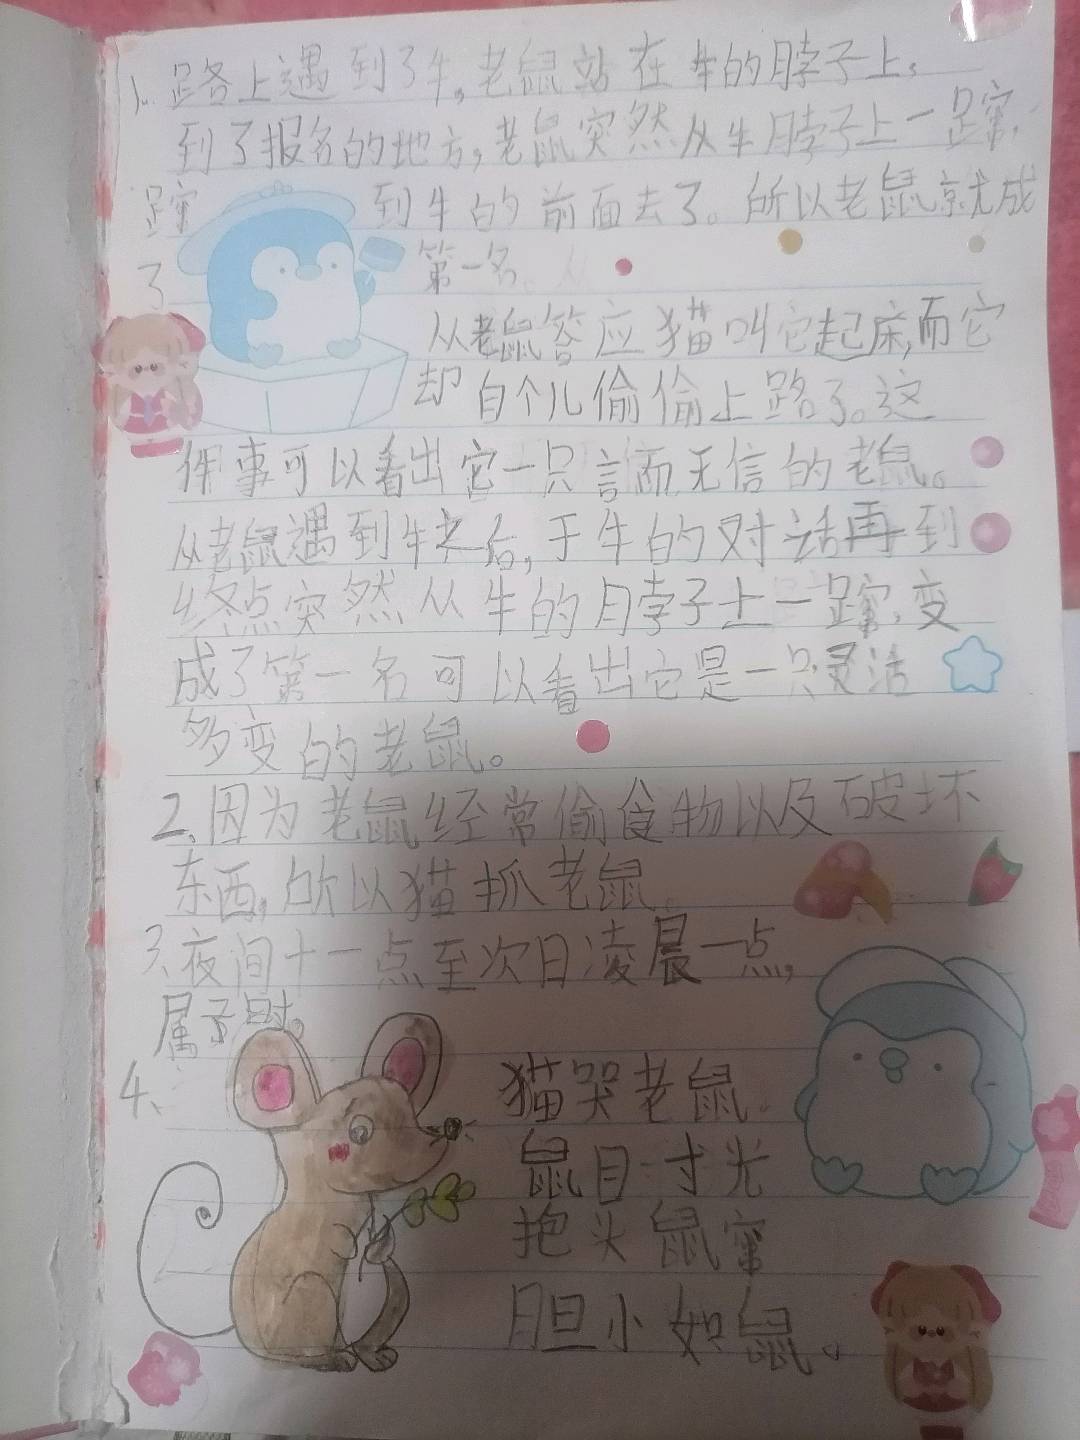 1. 路上遇到了牛,老鼠站在牛的脖子上,
到了报名的地方,老鼠突然从牛脖子上一蹿,
蹿到牛的前面去了。所以老鼠就成
了第一名。
从老鼠答应猫叫它起床,而它
却自个儿偷偷上路了。这
件事可以看出它一只言而无信的老鼠。
从老鼠遇到牛之后,于牛的对话再到
终点突然从牛的脖子上一蹿,变
成了第一名可以看出它是一只灵活
多变的老鼠。
2.因为老鼠经常偷食物以及破坏
东西,所以猫抓老鼠。
3、夜间十一点至次日凌晨一点,
属子时。
4、
猫哭老鼠
鼠目寸光
抱头鼠窜
胆小如鼠。